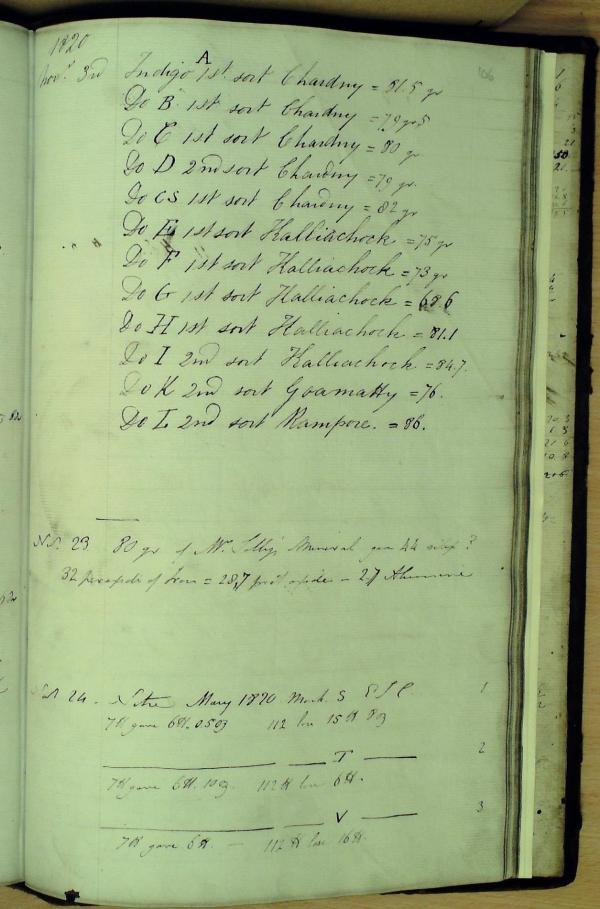 1820
106
Novr 3rd Indigo A 1st sort Chardny = 81.5 gr
Do B 1st sort Chardny = 79 gr 5
Do C 1st sort Chardny = 80 gr
Do D 2nd sort Chardny = 79 gr.
Do CS 1st sort Chardny = 82 gr
Do E 1st sort Kalliachock = 75 gr
Do F 1st sort Kalliachock = 73 gr
Do G 1st sort Kalliachock = 68 6
Do H 1st sort Kalliachock = 81.1
Do I 2nd sort Kalliachock = 84.7.
Do K 2nd sort Goamatty = 76.
Do L 2nd sort Rampore. = 86.
No. 23 80 gr of Mr. Mineral gave 44 ?
32 of Iron = 28,7 - 2,7 Alumine
No. 24 - Nitre Mary 1820 Mark S E I C. 1
7 lb gave 6 lb. 112 lose 15 lb 8 oz
T 2
7 lb gave 6 lb. 10 oz. 112 lb lose 6 lb.
V 3
7 lb gave 6 lb. 112 lb lose 16 lb.